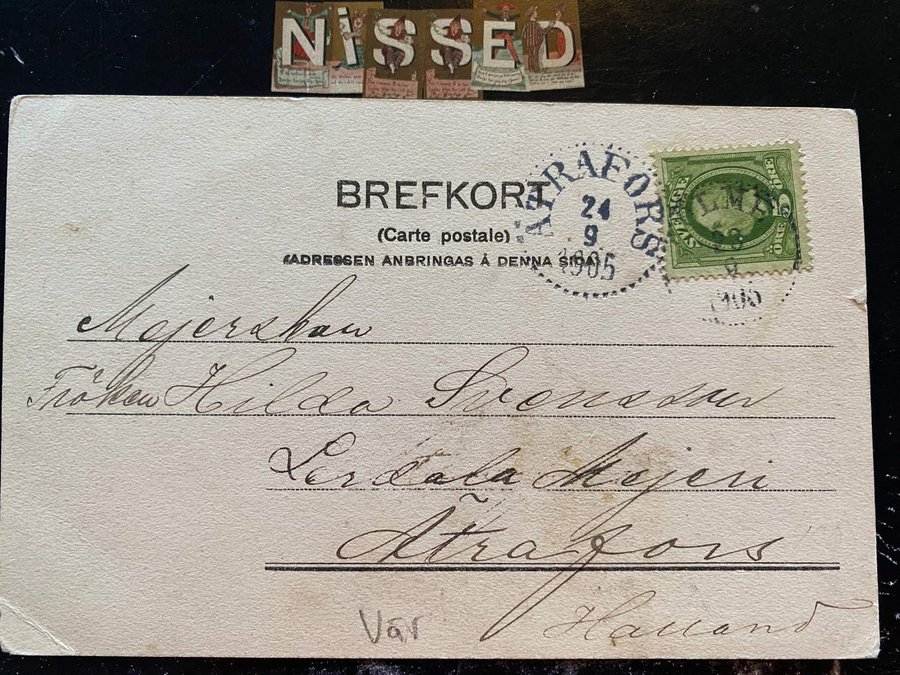 NISSED
BREFKORT
(Carte postale)
(ADRESSEN ANBRINGAS Å DENNA SIDA)
ÄTRAFORS
24
9
1905
SVERIGE
FEM
ÖRE
9
1905
Mejerskan
Fröken Hilda Svensson
Lerdala Mejeri
Ätrafors
Halland
Var